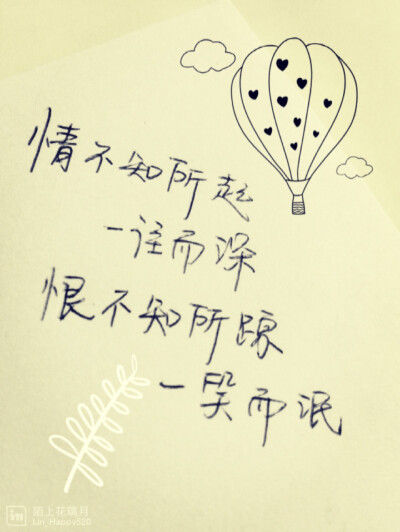 情不知所起
一往而深
恨不知所踪
一笑而泯
陌上花月
Lin_Happy520